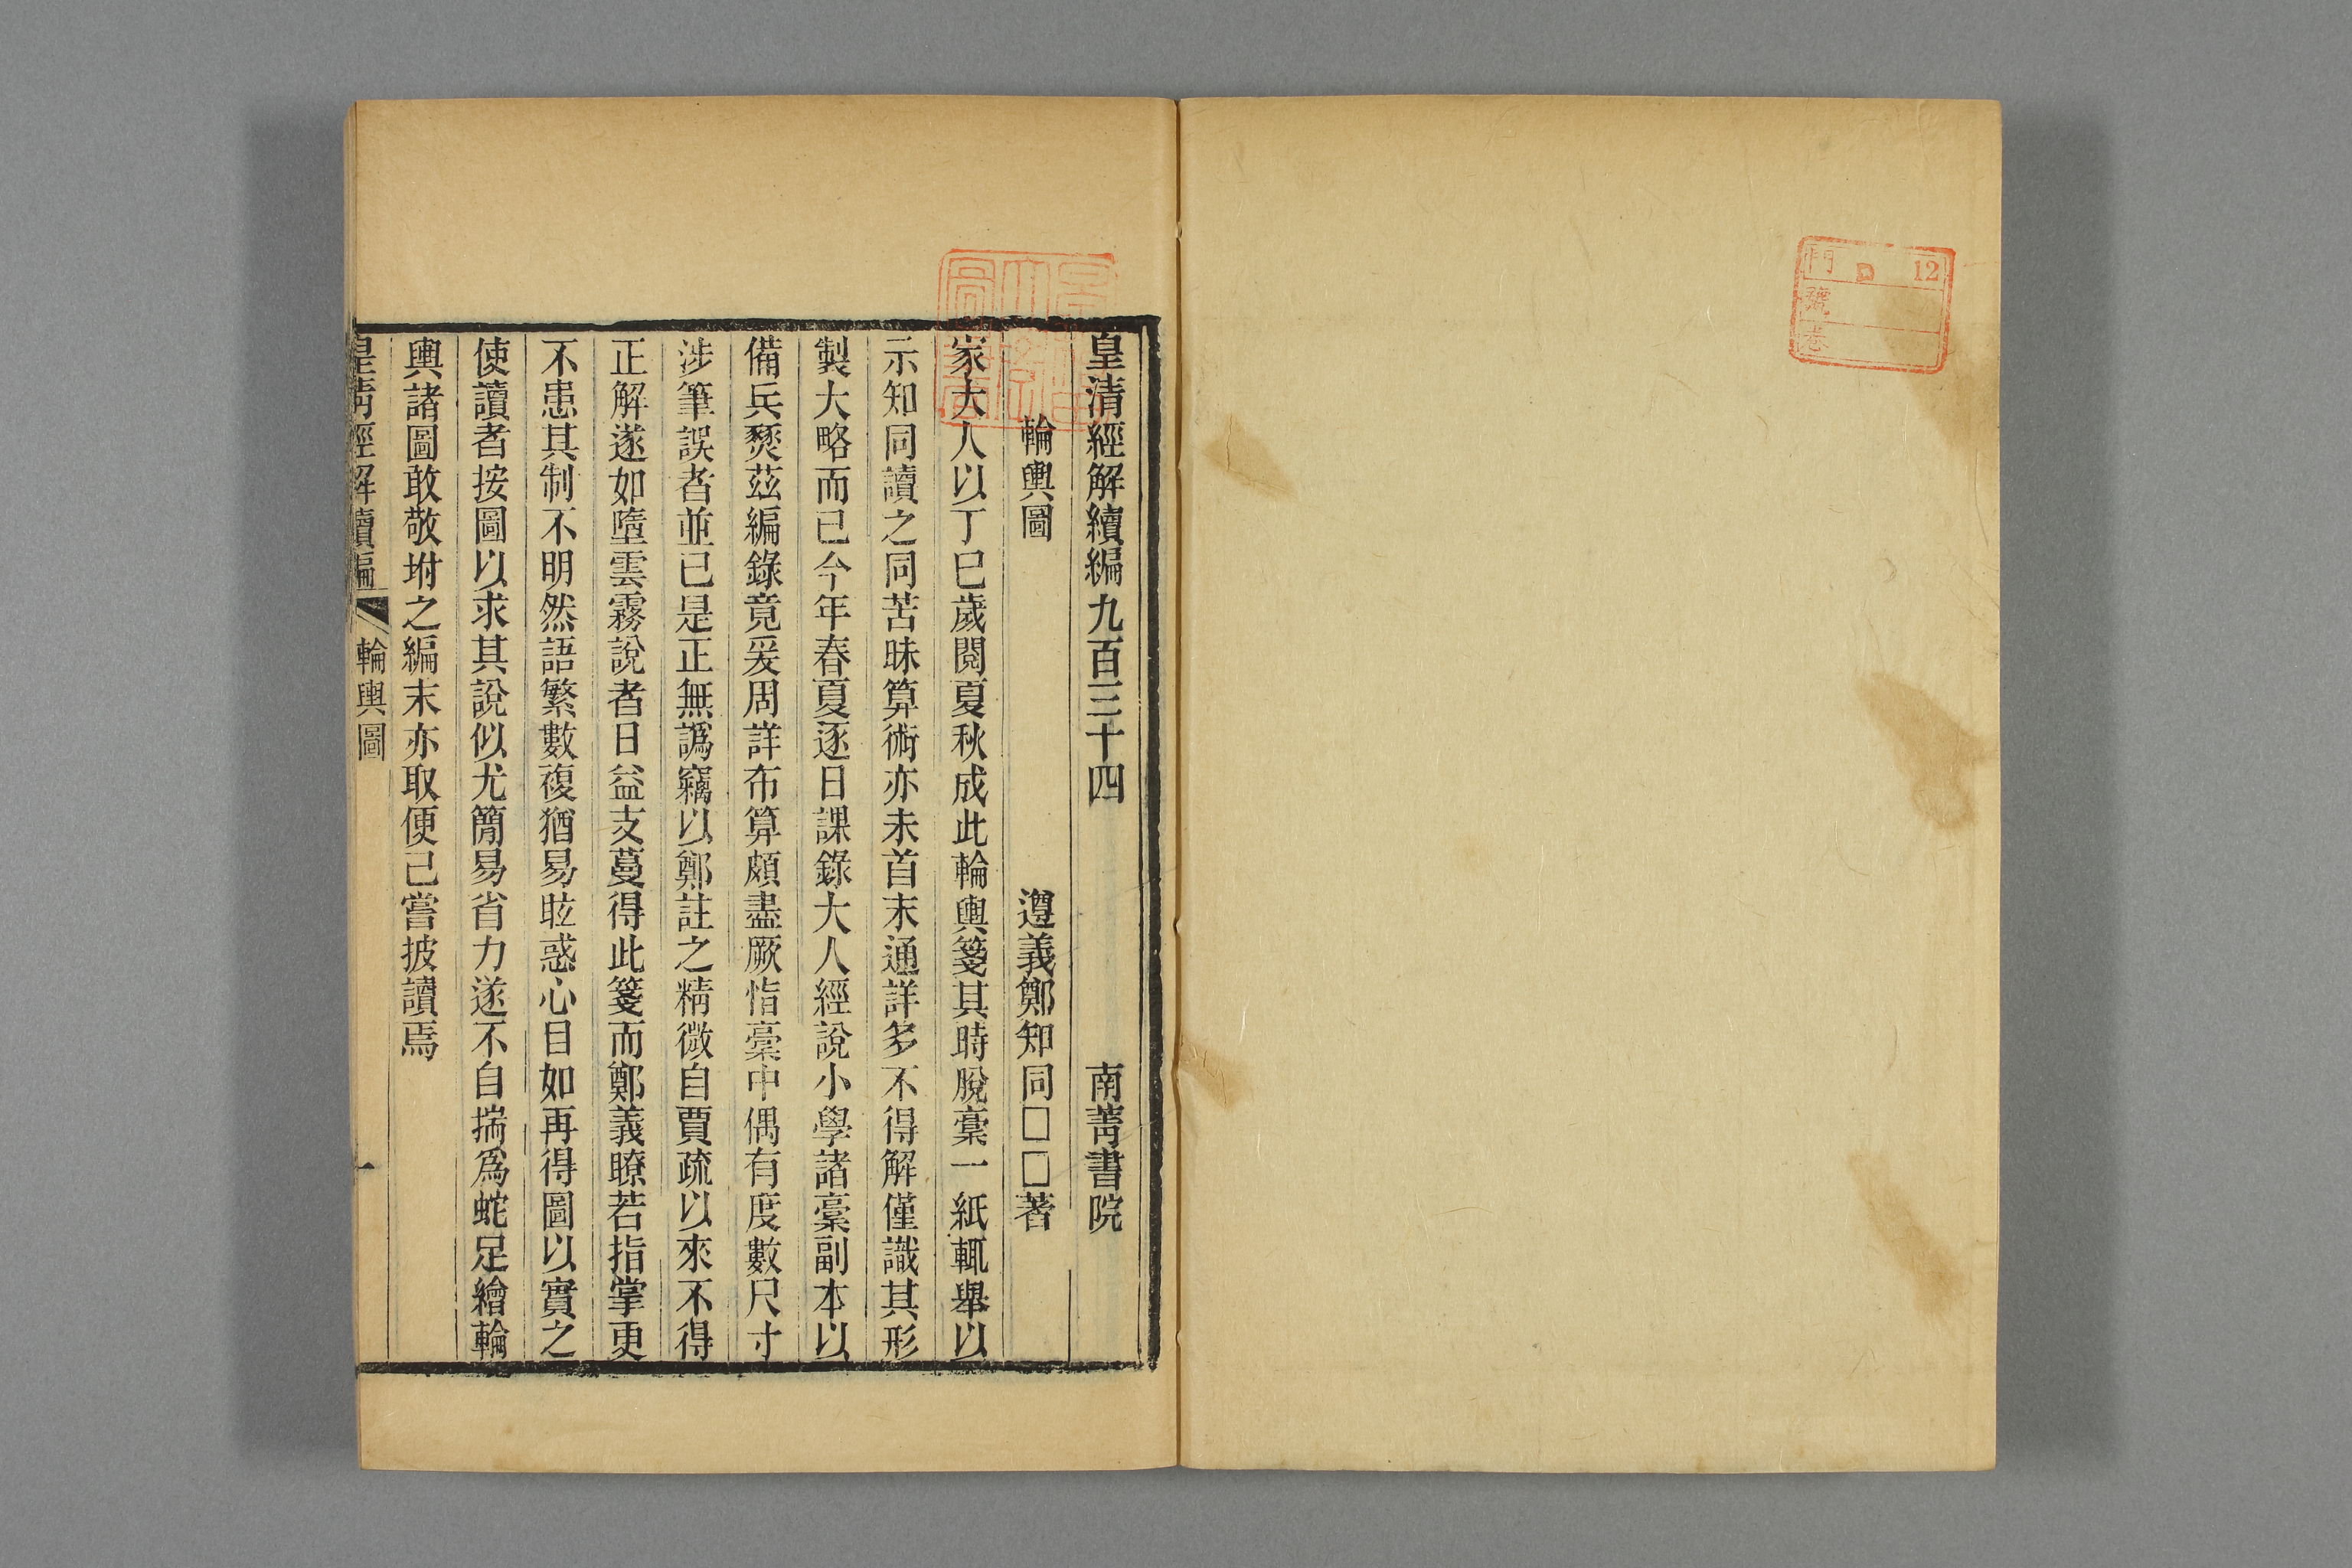 門 12
號
卷
皇清經解續編九百三十四 南菁書院
輪輿圖 遵義鄭知同□□著
家大人以丁巳歲閱夏秋成此輪輿箋其時脫稾一紙輒舉以
示知同讀之同苦昧算術亦未首末通詳多不得解僅識其形
製大略而已今年春夏逐日課錄大人經說小學諸稾副本以
備兵燹茲編錄竟爰周詳布算頗盡厥恉稾中偶有度數尺寸
涉筆誤者並已是正無譌竊以鄭註之精微自賈疏以來不得
正解遂如墮雲霧說者日益支蔓得此箋而鄭義瞭若指掌更
不患其制不明然語繁數複猶易眩惑心目如再得圖以實之
使讀者按圖以求其說似尤簡易省力遂不自揣爲蛇足繪輪
輿諸圖敢敬坿之編末亦取便己嘗披讀焉
皇清經解續編 輪輿圖 一